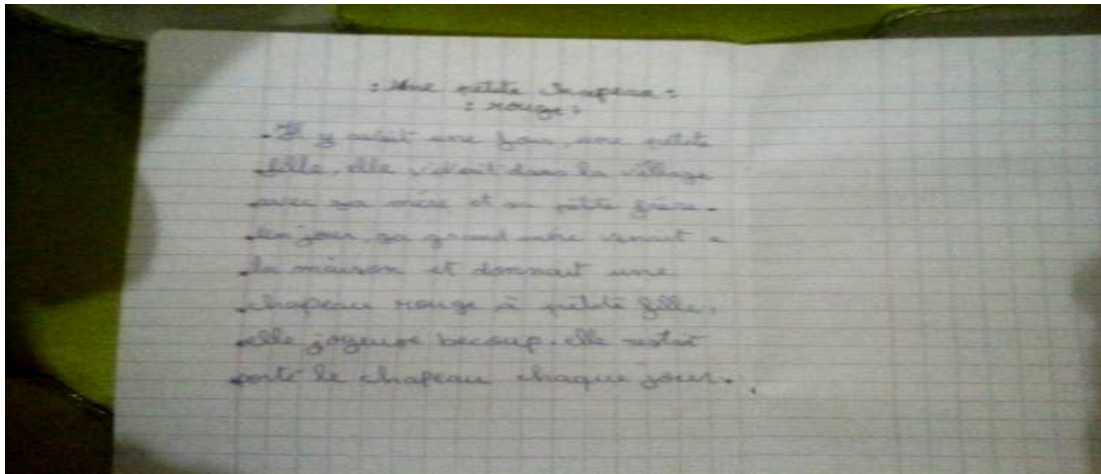 : Une petite Chapeau :
: rouge :
. Il y avait une fois, une petite
fille, elle vivait dans la village
avec sa mère et sa petite frère.
un jour, sa grand mère venait a
la maison et donnait une
chapeau rouge à petite fille.
elle joyeuse becoup. elle restat
porté le chapeau chaque jour.